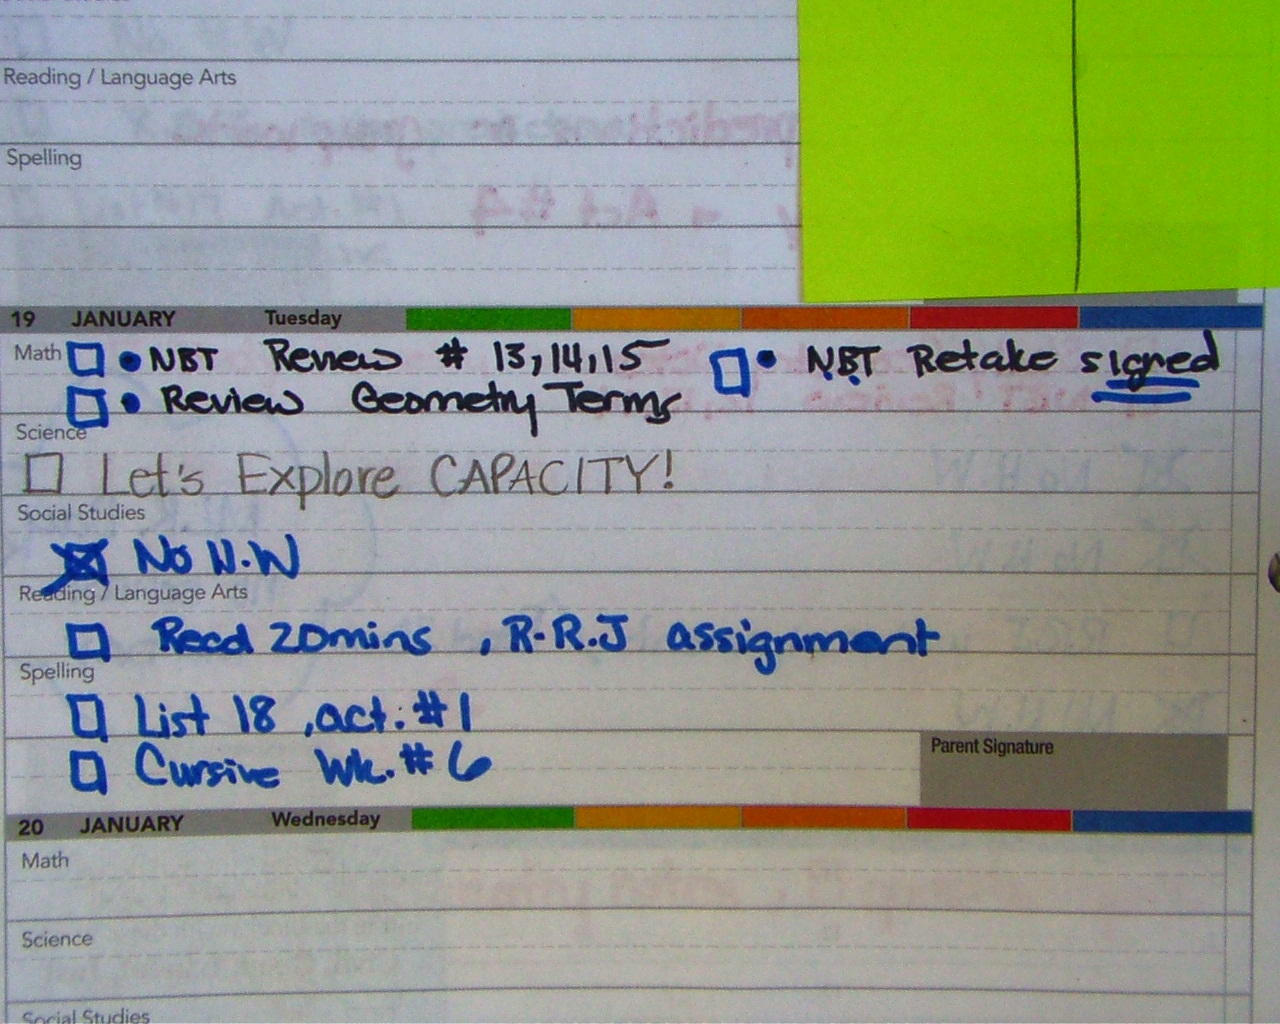 Reading / Language Arts
Spelling
19 JANUARY Tuesday
Math • NBT Review # 13,14,15 • NBT Retake signed
• Review Geometry Terms
Science
Let's Explore CAPACITY!
Social Studies
No H.W
Reading / Language Arts
Read 20mins , R.R.J assignment
Spelling
List 18 , act. #1
Cursive Wk. # 6
Parent Signature
20 JANUARY Wednesday
Math
Science
Social Studies